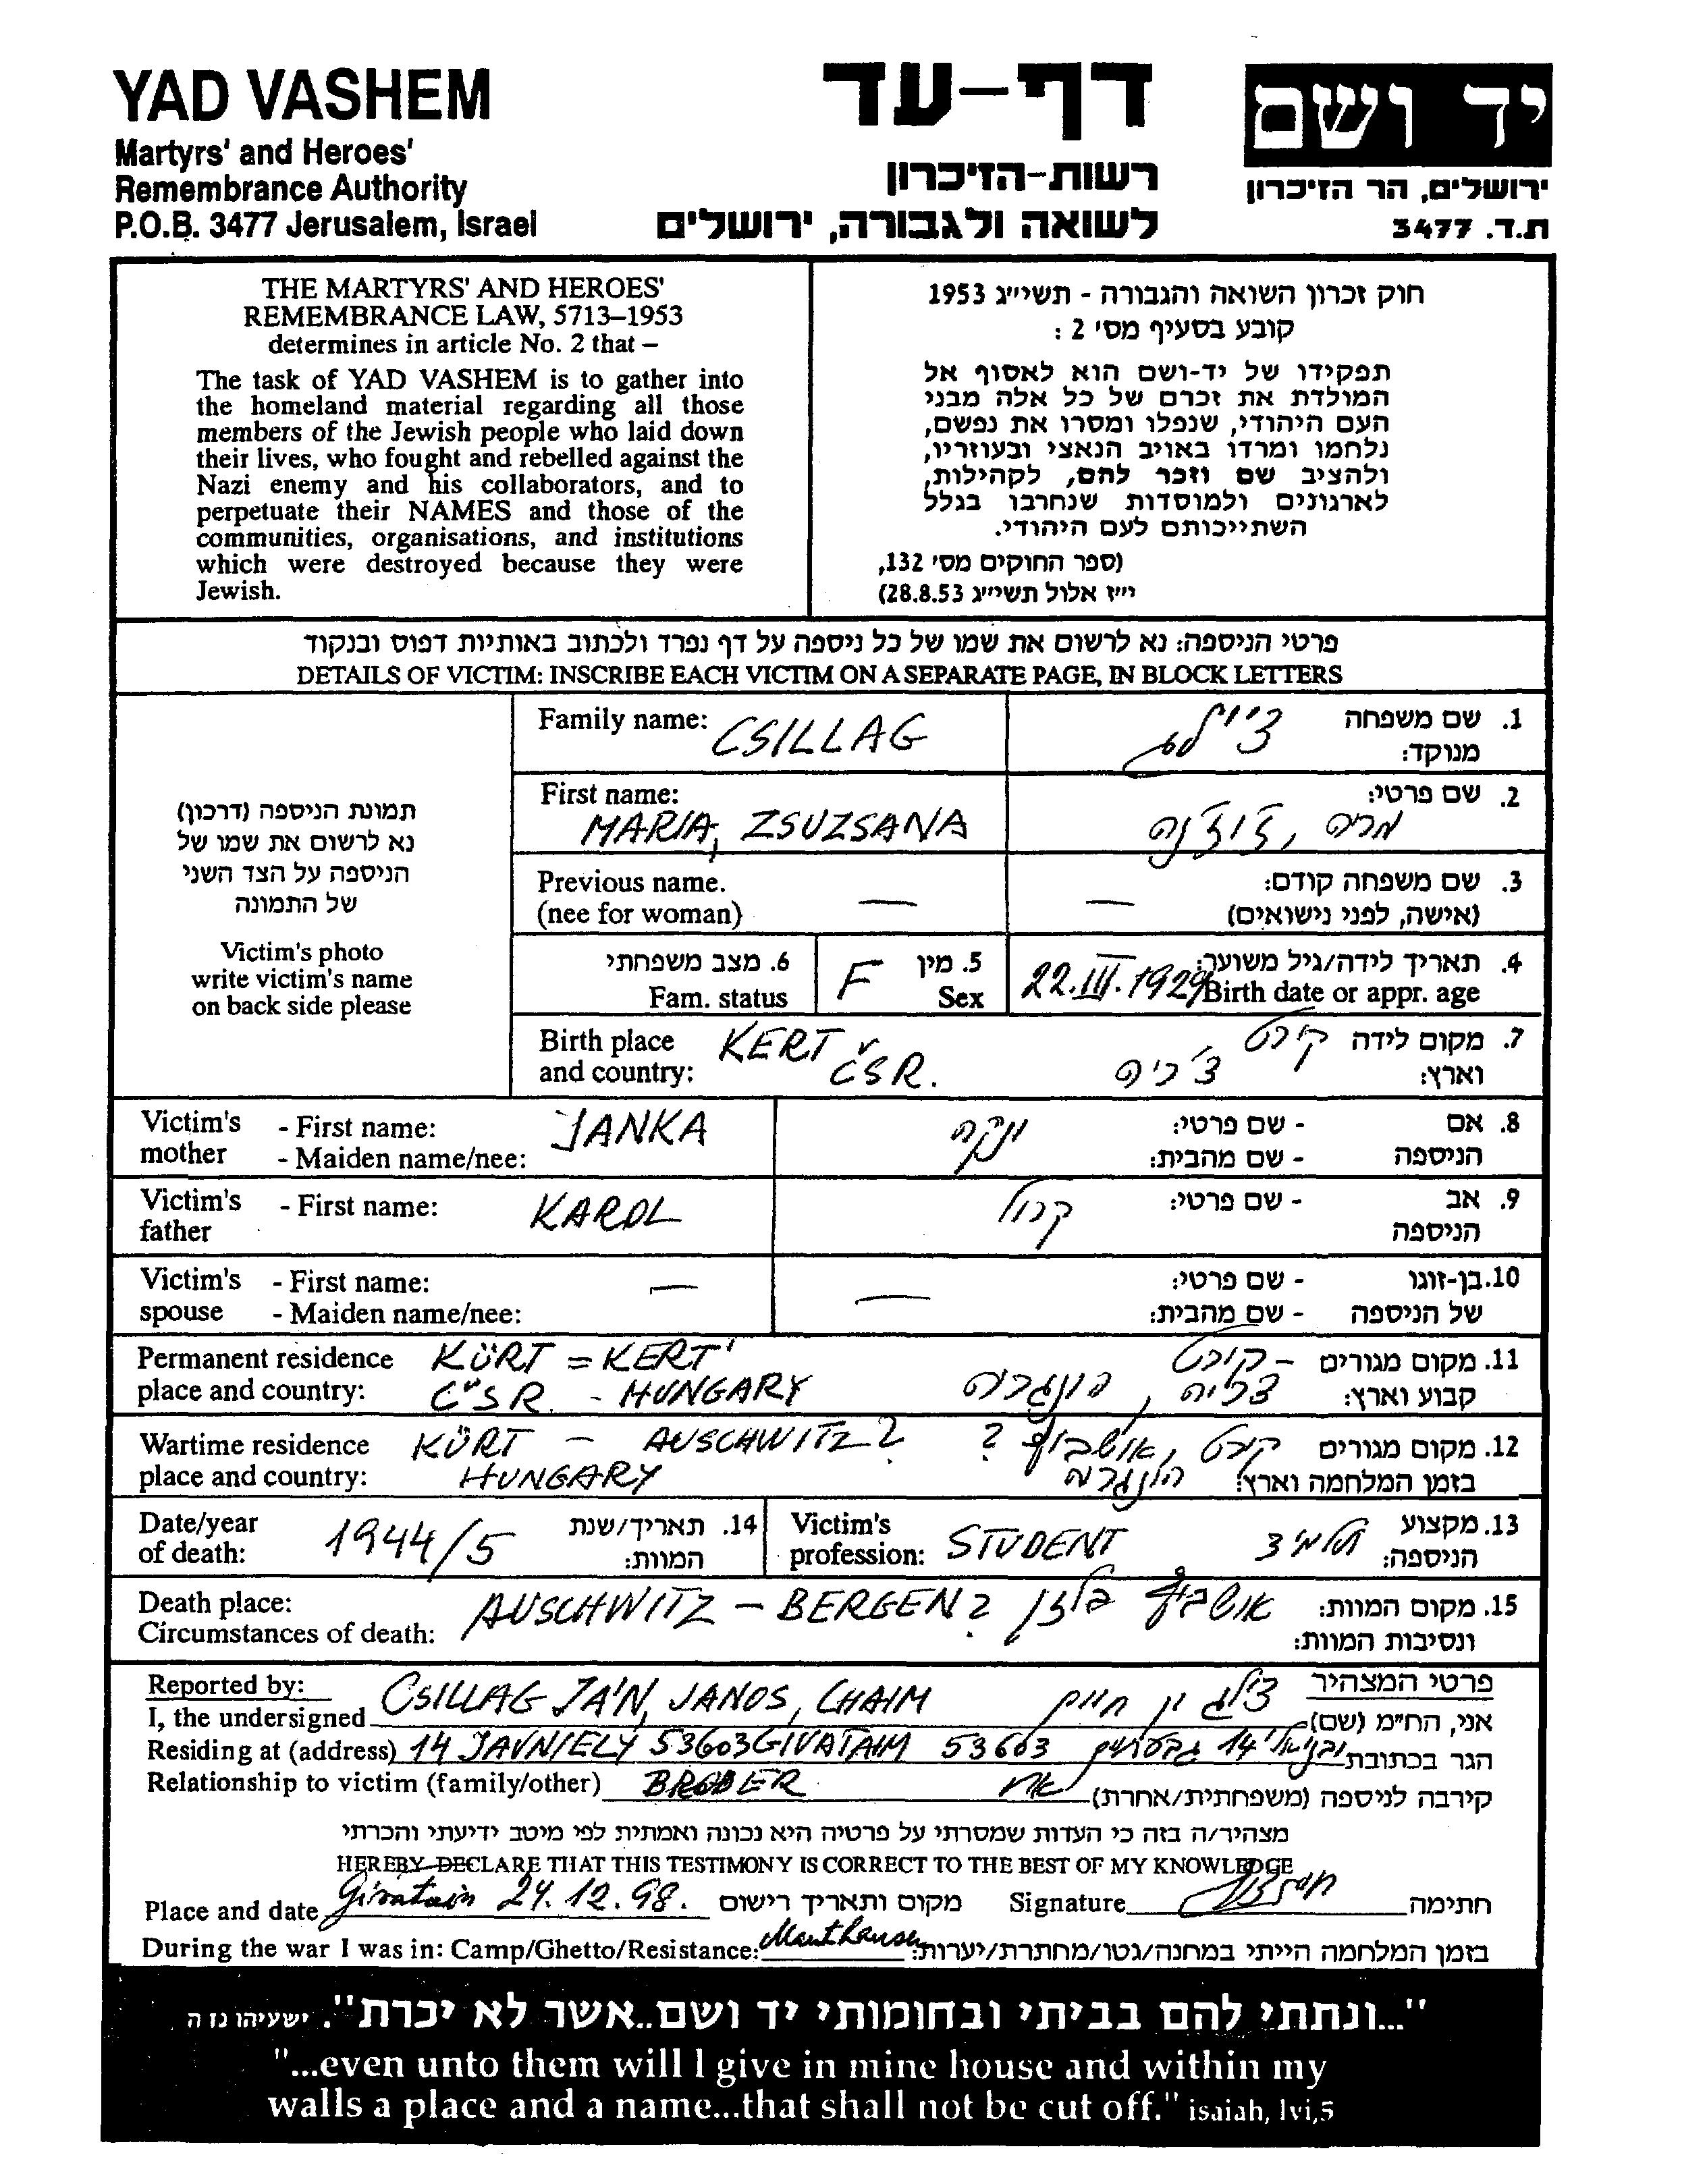 YAD VASHEM
Martyrs' and Heroes'
Remembrance Authority
P.O.B. 3477 Jerusalem, Israel
דף-עד
רשות-הזיכרון
לשואה ולגבורה, ירושלים
יד ושם
ירושלים, הר הזיכרון
ת.ד. 3477
THE MARTYRS' AND HEROES'
REMEMBRANCE LAW, 5713–1953
determines in article No. 2 that –
The task of YAD VASHEM is to gather into
the homeland material regarding all those
members of the Jewish people who laid down
their lives, who fought and rebelled against the
Nazi enemy and his collaborators, and to
perpetuate their NAMES and those of the
communities, organisations, and institutions
which were destroyed because they were
Jewish.
חוק זכרון השואה והגבורה - תשי״ג 1953
קובע בסעיף מס׳ 2 :
תפקידו של יד-ושם הוא לאסוף אל
המולדת את זכרם של כל אלה מבני
העם היהודי, שנפלו ומסרו את נפשם,
נלחמו ומרדו באויב הנאצי ובעוזריו,
ולהציב שם וזכר להם, לקהילות,
לארגונים ולמוסדות שנחרבו בגלל
השתייכותם לעם היהודי.
(ספר החוקים מס׳ 132,
י״ז אלול תשי״ג 28.8.53)
פרטי הניספה: נא לרשום את שמו של כל ניספה על דף נפרד ולכתוב באותיות דפוס ובנקוד
DETAILS OF VICTIM: INSCRIBE EACH VICTIM ON A SEPARATE PAGE, IN BLOCK LETTERS
תמונת הניספה (דרכון)
נא לרשום את שמו של
הניספה על הצד השני
של התמונה
Victim's photo
write victim's name
on back side please
Family name: CSILLAG צ׳ילג 1. שם משפחה
מנוקד:
First name: 2. שם פרטי:
MARIA, ZSUZSANA מריה, ז׳וז׳נה
Previous name. — — 3. שם משפחה קודם:
(nee for woman) (אישה, לפני נישואים)
6. מצב משפחתי F 5. מין 22.III.1929 4. תאריך לידה/גיל משוער:
Fam. status Sex Birth date or appr. age
Birth place KERT קירט 7. מקום לידה
and country: ČSR. צ׳כיה וארץ:
Victim's - First name: JANKA ינקה - שם פרטי: 8. אם
mother - Maiden name/nee: - שם מהבית: הניספה
Victim's - First name: KAROL קרול - שם פרטי: 9. אב
father הניספה
Victim's - First name: — — - שם פרטי: 10. בן-זוגו
spouse - Maiden name/nee: - שם מהבית: של הניספה
Permanent residence KÜRT = KERT קירט - 11. מקום מגורים
place and country: ČSR. - HUNGARY צ׳כיה, הונגריה קבוע וארץ:
Wartime residence KÜRT – AUSCHWITZ? קירט, אושביץ ? 12. מקום מגורים
place and country: HUNGARY הונגריה בזמן המלחמה וארץ:
Date/year 1944/5 14. תאריך/שנת Victim's STUDENT תלמיד 13. מקצוע
of death: המוות: profession: הניספה:
Death place: AUSCHWITZ – BERGEN? אושביץ בלזן 15. מקום המוות:
Circumstances of death: ונסיבות המוות:
Reported by: פרטי המצהיר
I, the undersigned CSILLAG JÁN, JANOS, CHAIM צ׳לג ין חיים אני, הח״מ (שם)
Residing at (address) 14 JAVNIELY 53603 GIVATAIM 53603 גבעתיים 14 יבניאלי הגר בכתובת
Relationship to victim (family/other) BRODER אח קירבה לניספה (משפחתית/אחרת)
מצהיר/ה בזה כי העדות שמסרתי על פרטיה היא נכונה ואמתית לפי מיטב ידיעתי והכרתי
HEREBY DECLARE THAT THIS TESTIMONY IS CORRECT TO THE BEST OF MY KNOWLEDGE
Place and date Givataim 24.12.98. מקום ותאריך רישום Signature חתימה
During the war I was in: Camp/Ghetto/Resistance: Mauthausen בזמן המלחמה הייתי במחנה/גטו/מחתרת/יערות:
"...ונתתי להם בביתי ובחומותי יד ושם..אשר לא יכרת". ישעיהו נו ה
"...even unto them will I give in mine house and within my
walls a place and a name...that shall not be cut off." isaiah, lvi,5